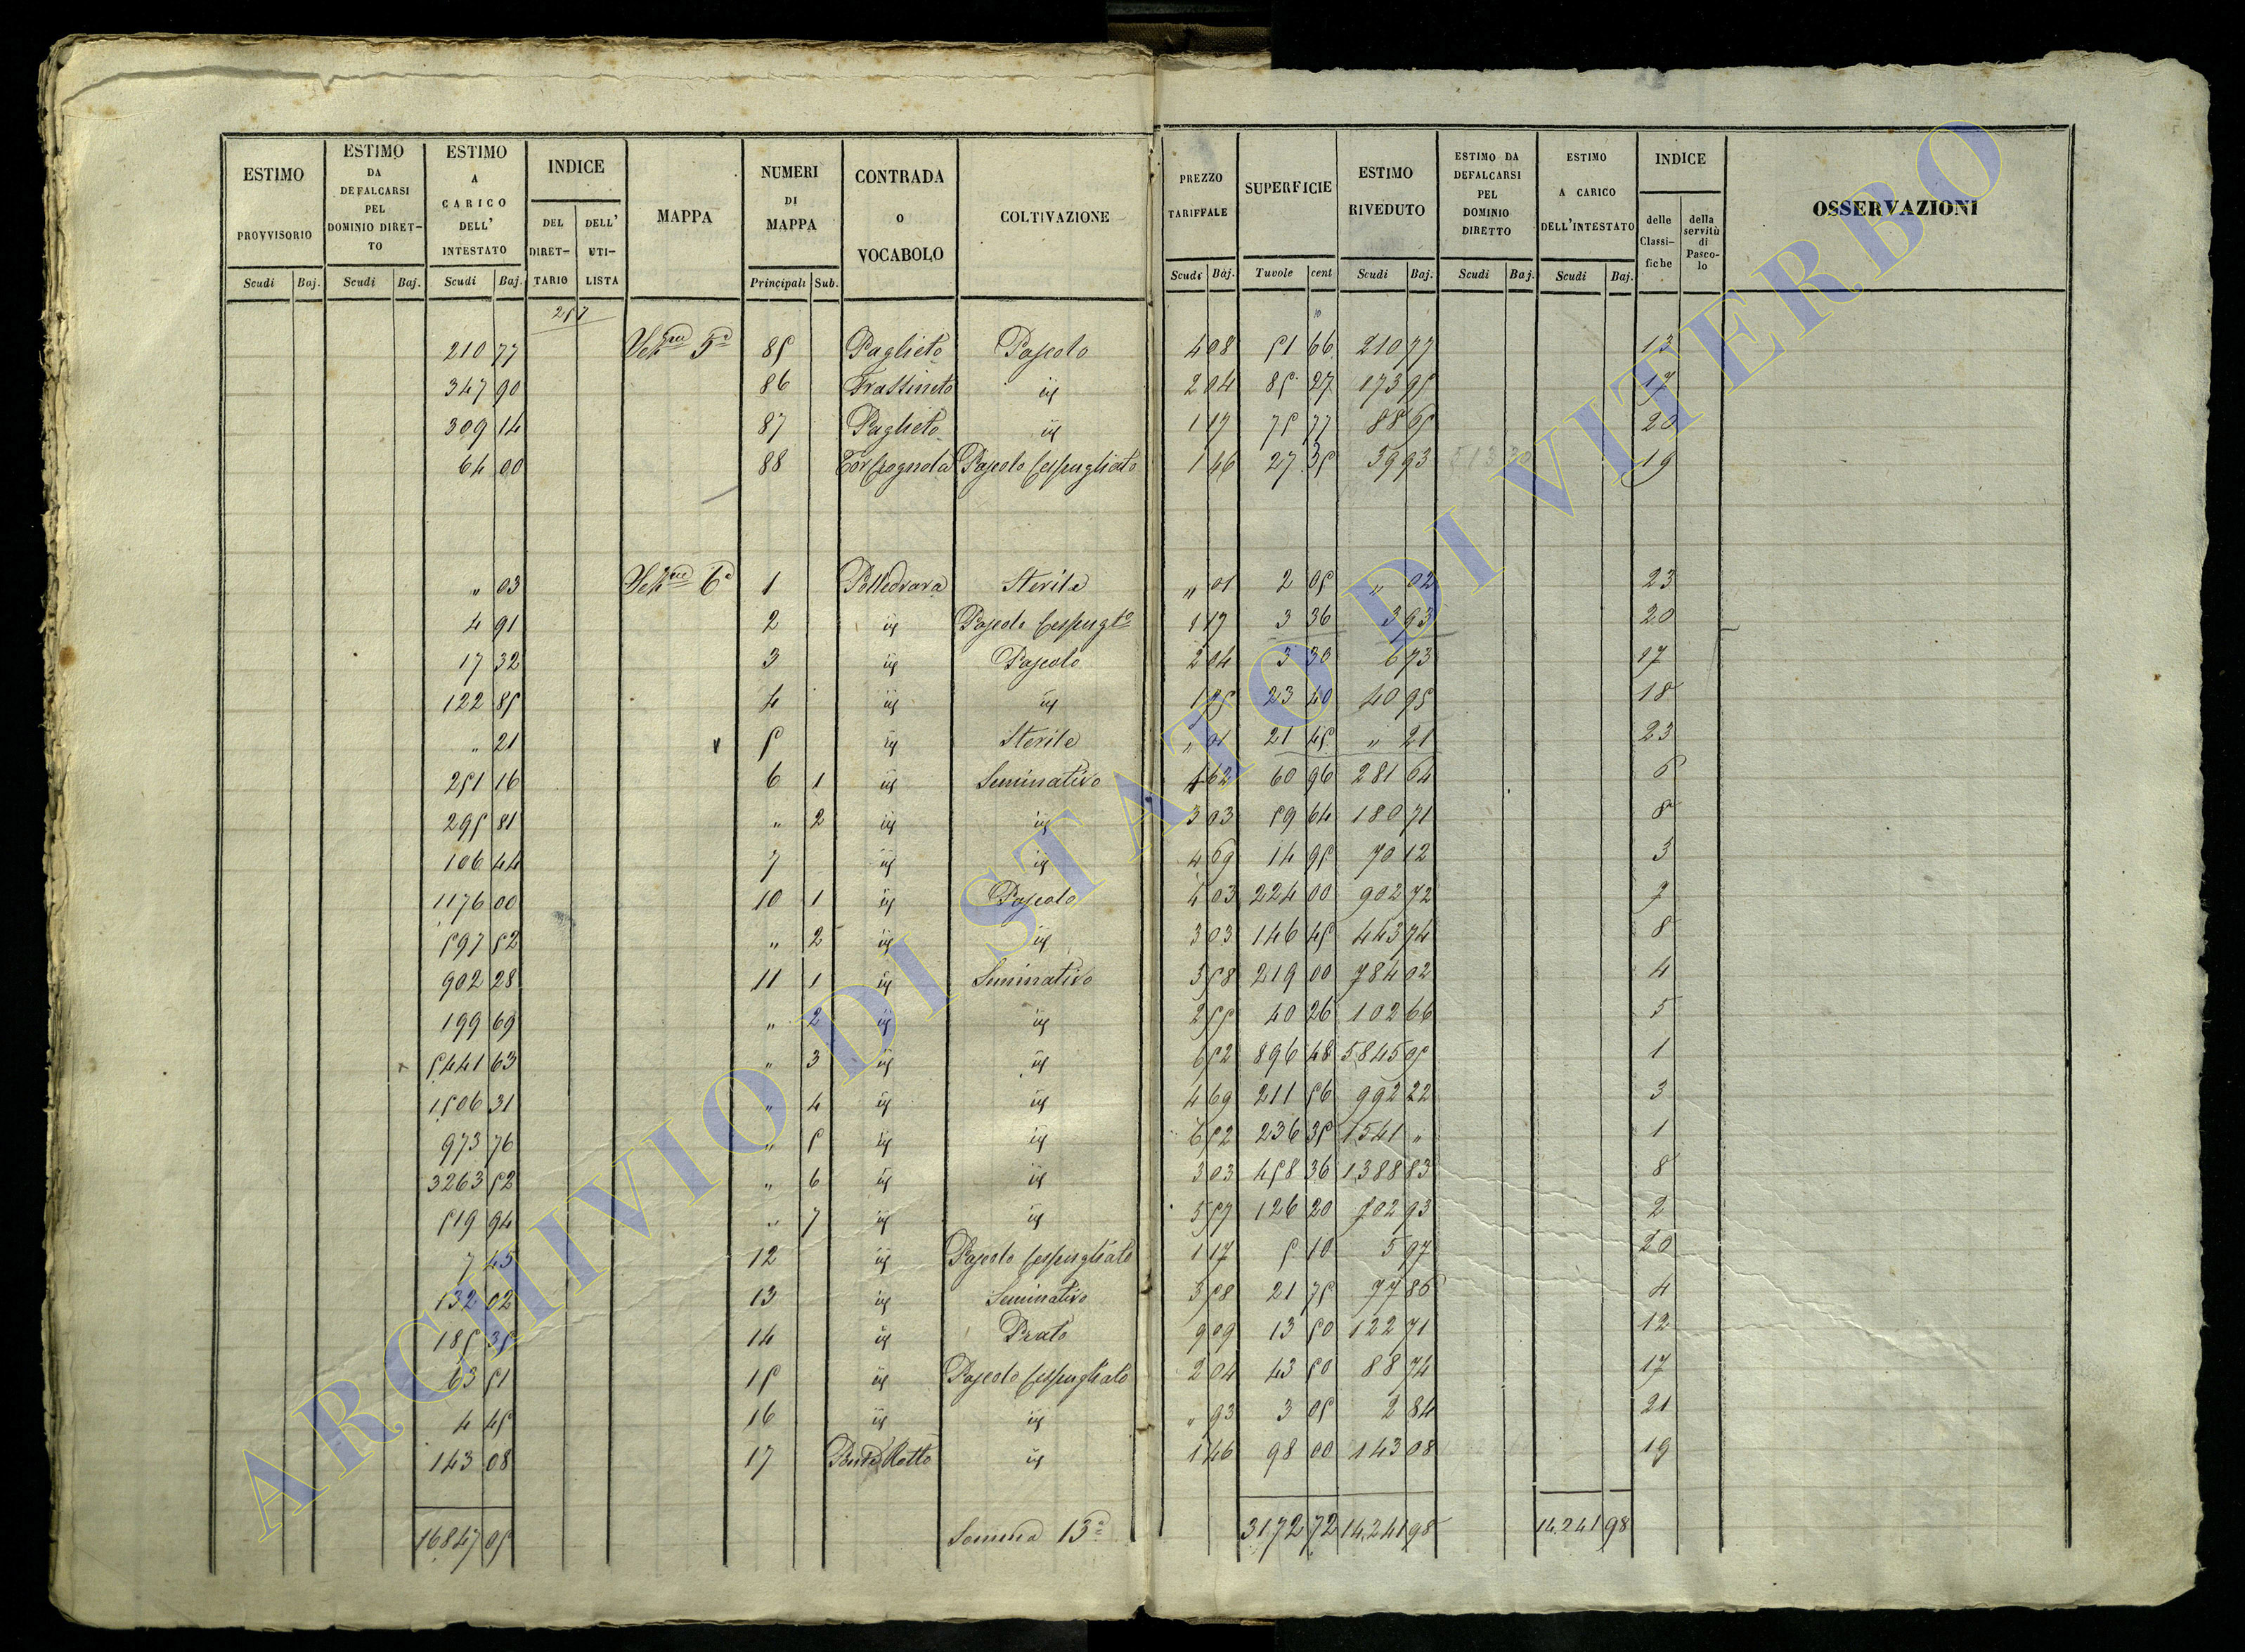 ESTIMO PROVVISORIO | ESTIMO DA DEFALCARSI PEL DOMINIO DIRETTO | ESTIMO A CARICO DELL' INTESTATO | INDICE | MAPPA | NUMERI DI MAPPA | CONTRADA O VOCABOLO | COLTIVAZIONE | PREZZO TARIFFALE | SUPERFICIE | ESTIMO RIVEDUTO | ESTIMO DA DEFALCARSI PEL DOMINIO DIRETTO | ESTIMO A CARICO DELL'INTESTATO | INDICE | OSSERVAZIONI
DEL DIRETTARIO | DELL' UTILISTA | delle Classifiche | della servitù di Pascolo
Scudi | Baj. | Scudi | Baj. | Scudi | Baj. | Principali | Sub. | Scudi | Baj. | Tavole | cent | Scudi | Baj. | Scudi | Baj. | Scudi | Baj.
257
210 77 | 5ª | 85 | Paglieto | Pascolo | 4 08 | 51 66 | 210 77 | 13
347 90 | 86 | Frassineto | id | 2 04 | 85 27 | 173 95 | 17
309 14 | 87 | Paglieto | id | 1 17 | 75 77 | 88 65 | 20
64 00 | 88 | Pascolo cespugliato | 1 46 | 27 35 | 39 93 | 19
„ 03 | 6ª | 1 | Polledrara | Sterile | „ 01 | 2 05 | „ 02 | 23
4 91 | 2 | id | Pascolo cespugto | 1 17 | 3 36 | 3 93 | 20
17 32 | 3 | id | Pascolo | 2 04 | 3 30 | 6 73 | 17
122 85 | 4 | id | id | 1 75 | 23 40 | 40 95 | 18
„ 21 | 5 | id | Sterile | „ 01 | 21 45 | „ 21 | 23
251 16 | 6 1 | id | Seminativo | 4 62 | 60 96 | 281 64 | 6
295 81 | „ 2 | id | id | 3 03 | 59 64 | 180 71 | 8
106 44 | 7 | id | id | 4 69 | 14 95 | 70 12 | 3
1176 00 | 10 1 | id | Pascolo | 4 03 | 224 00 | 902 72 | 7
597 52 | „ 2 | id | id | 3 03 | 146 45 | 443 74 | 8
902 28 | 11 1 | id | Seminativo | 3 58 | 219 00 | 784 02 | 4
199 69 | „ 2 | id | id | 2 55 | 40 26 | 102 66 | 5
5441 63 | „ 3 | id | id | 6 52 | 896 48 | 5845 05 | 1
1506 31 | „ 4 | id | id | 4 69 | 211 56 | 992 22 | 3
973 76 | „ 5 | id | id | 6 52 | 236 35 | 1541 „ | 1
3263 52 | „ 6 | id | id | 3 03 | 458 36 | 1388 83 | 8
519 94 | „ 7 | id | id | 5 57 | 126 20 | 702 93 | 2
7 45 | 12 | id | Pascolo cespugliato | 1 17 | 5 10 | 5 97 | 20
132 02 | 13 | id | Seminativo | 3 58 | 21 75 | 77 86 | 4
185 35 | 14 | id | Prato | 9 09 | 13 50 | 122 71 | 12
63 51 | 15 | id | Pascolo cespugliato | 2 04 | 43 50 | 88 74 | 17
4 45 | 16 | id | id | „ 93 | 3 05 | 2 84 | 21
143 08 | 17 | Ponte Rotto | id | 1 46 | 98 00 | 143 08 | 19
16847 05 | Somma 13ª | 3172 72 | 14,241 98 | 14,241 98
ARCHIVIO DI STATO DI VITERBO